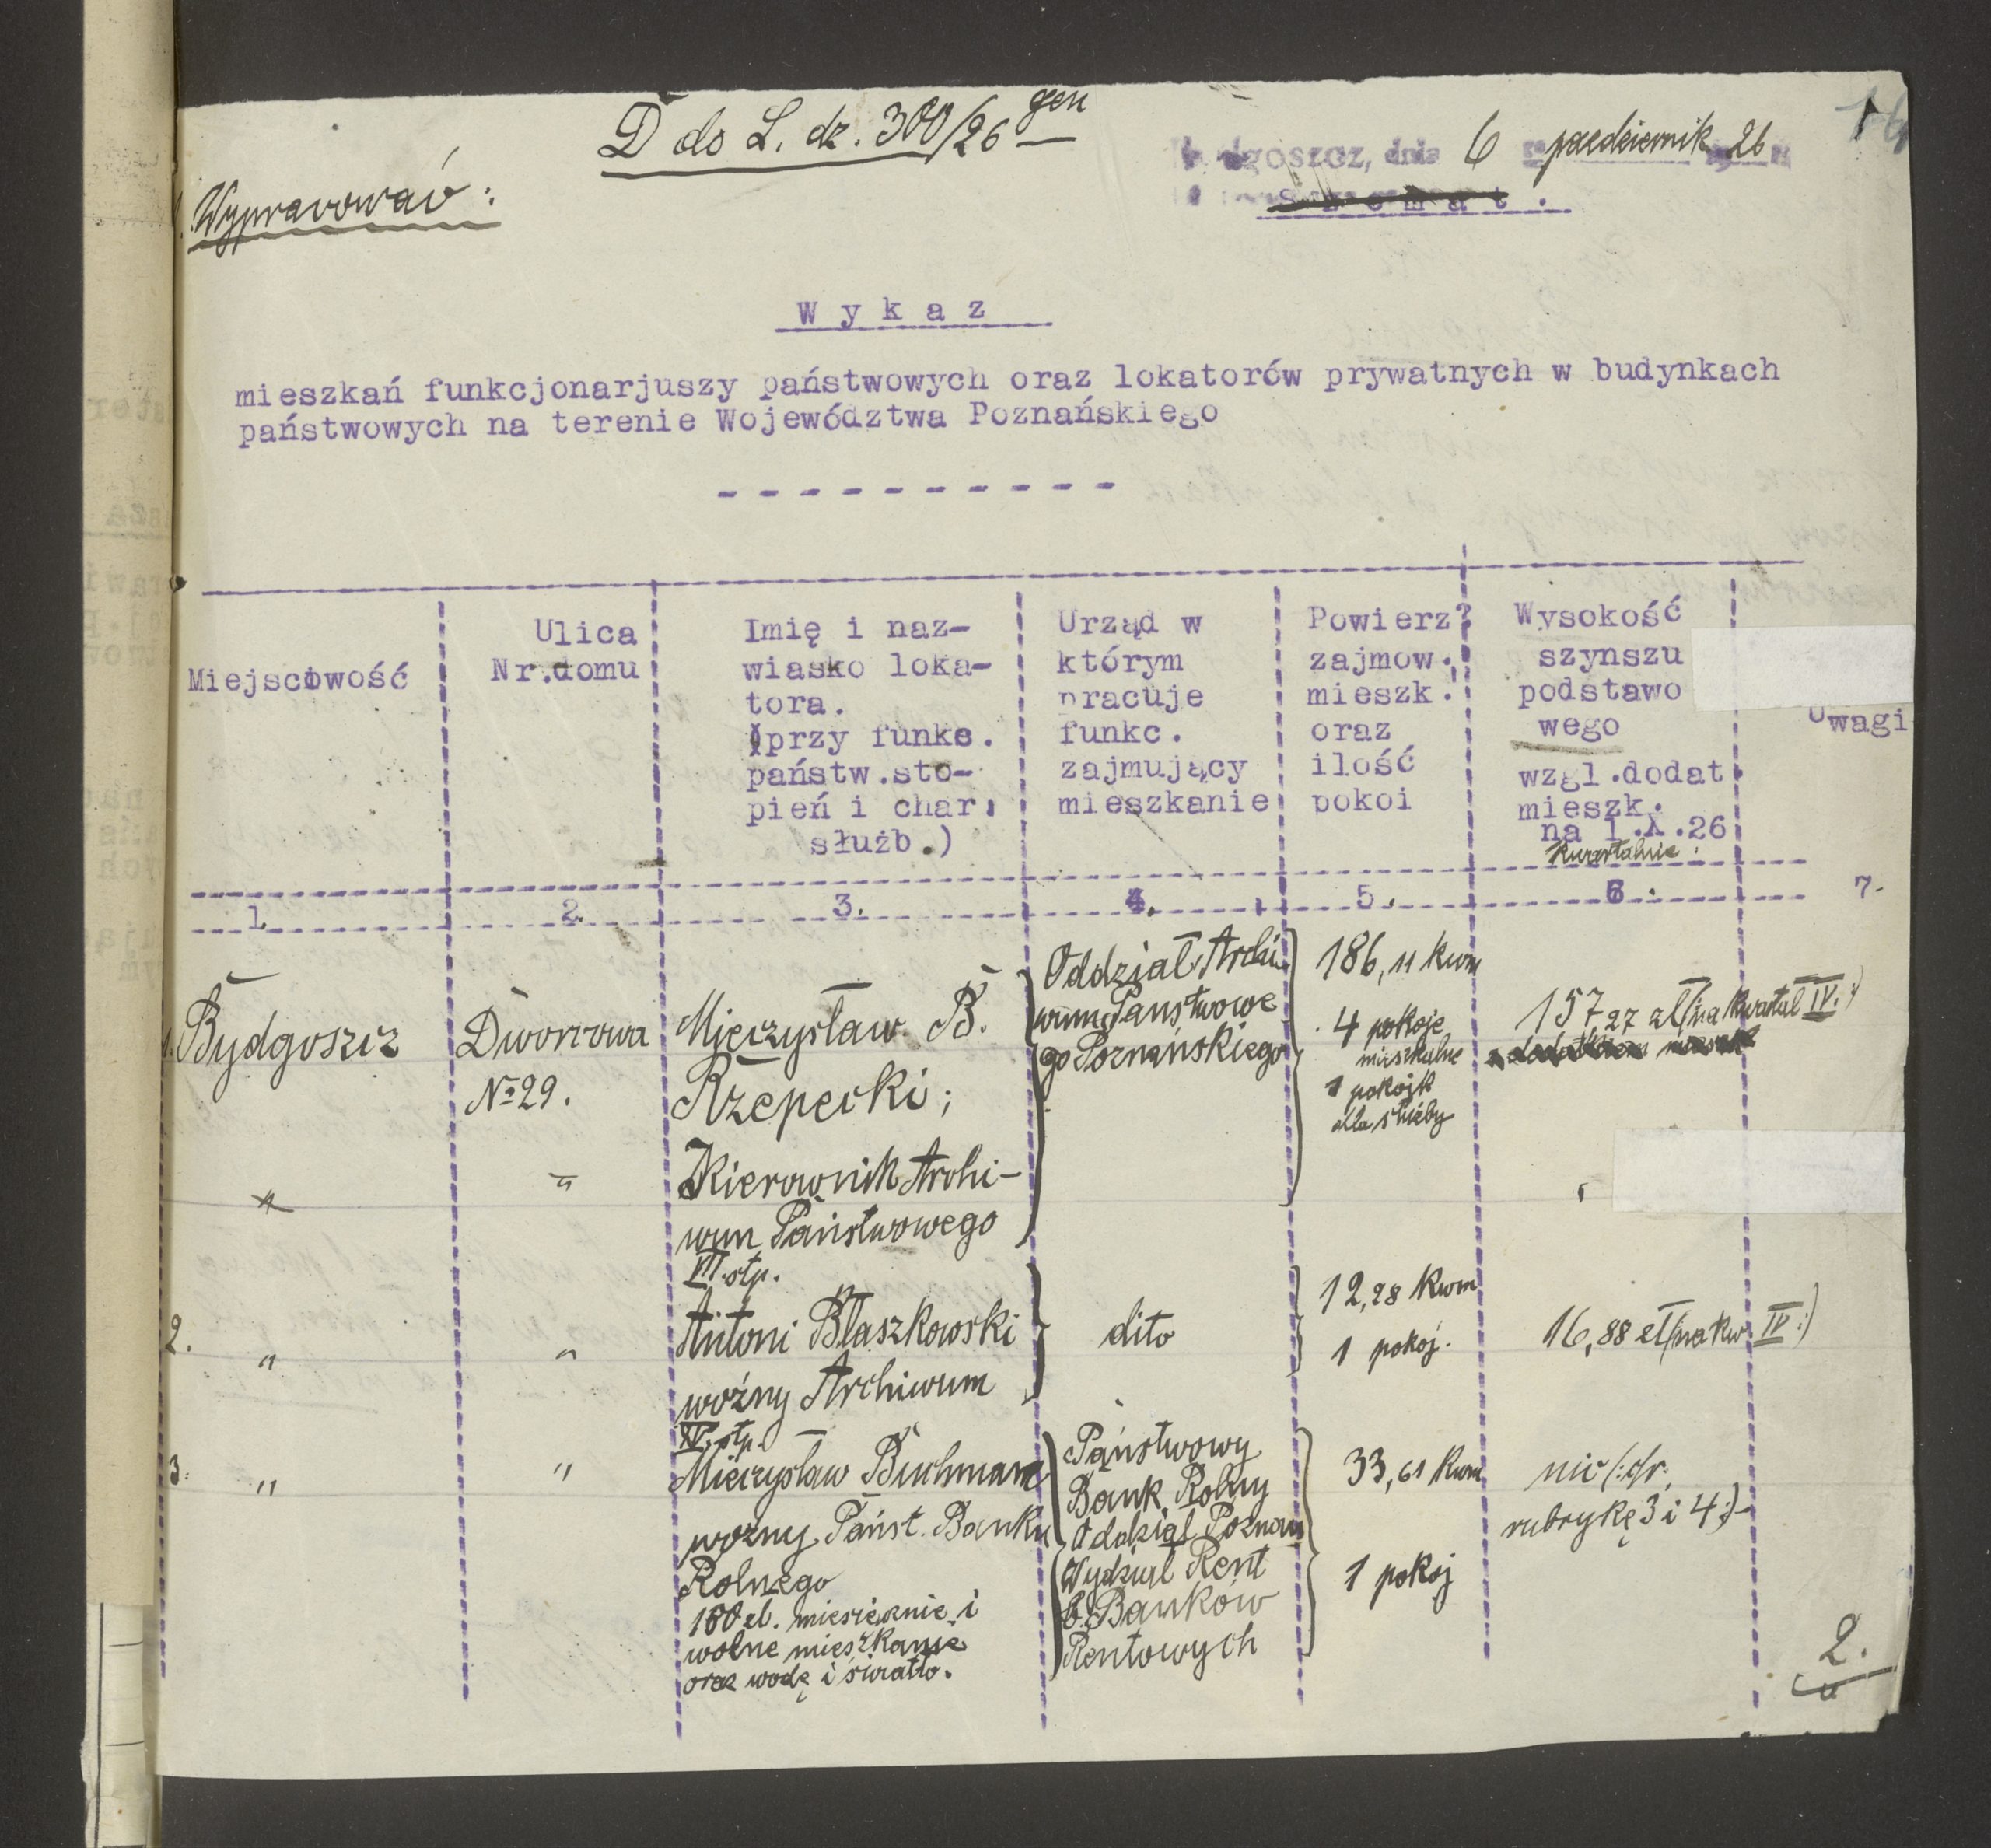 D do L. dz. 300/26 gen
Bydgoszcz, dnia 6 październik 26
Wypracować:
Schemat.
Wykaz
mieszkań funkcjonarjuszy państwowych oraz lokatorów prywatnych w budynkach
państwowych na terenie Województwa Poznańskiego
Miejscowość
Ulica
Nr.domu
Imię i naz-
wiasko loka-
tora.
(przy funkc.
państw.sto-
pień i char.
służb.)
Urząd w
którym
pracuje
funkc.
zajmujący
mieszkanie
Powierz?
zajmow.
mieszk.
oraz
ilość
pokoi
Wysokość
szynszu
podstawo
wego
wzgl.dodat
mieszk.
na 1.X.26
kwartalnie:
Uwagi
1. 2. 3. 4. 5. 6. 7-
1. Bydgoszcz
Dworcowa
No 29.
Mieczysław B.
Rzepecki;
Kierownik Archi-
wum Państwowego
VII. stp.
Oddział Archi
wum Państwowe
go Poznańskiego
186,11 kwm
4 pokoje
mieszkalne
1 pokojk
dla służby
157 27 zł/na kwartał IV:)
" "
2. " "
Antoni Błaszkowski
woźny Archiwum
XV. stp.
dito
12,28 kwm
1 pokój.
16,88 zł/na kw IV:)
3. " "
Mieczysław Buchmann
woźny Państ. Banku
Rolnego
160 zł. miesięcznie i
wolne mieszkanie
oraz wodę i światło.
Państwowy
Bank Rolny
Oddział Poznań
Wydział Rent
b. Banków
Rentowych
33,61 kwm
1 pokoj
nic (:cfr.
rubrykę 3 i 4:)-
2.